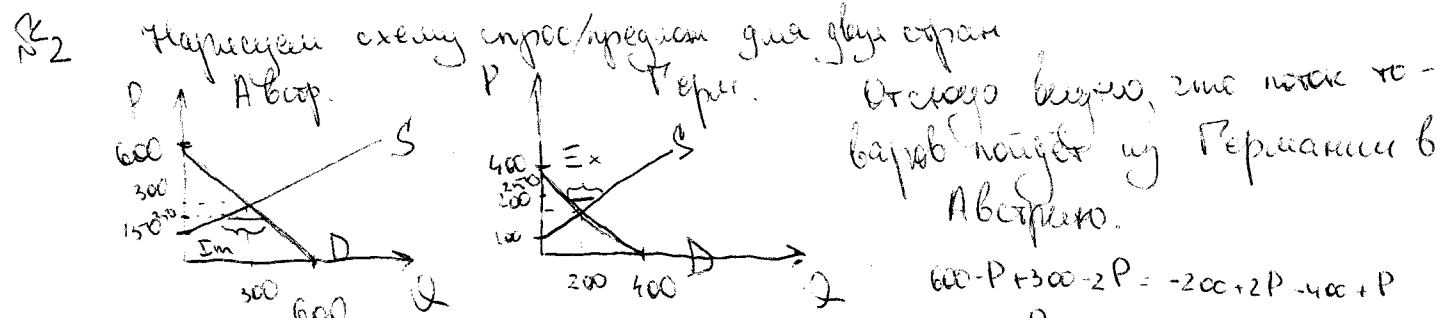 №2 Нарисуем схему спрос/предлож для двух стран
P Австр.
600
300
250
150
Im
S
D
300
600
Q
P Герм.
400
250
200
100
Ex
S
D
200
400
Q
Отсюда видно, что поток то-
варов пойдёт из Германии в
Австрию.
600-P+300-2P = -200+2P-400+P